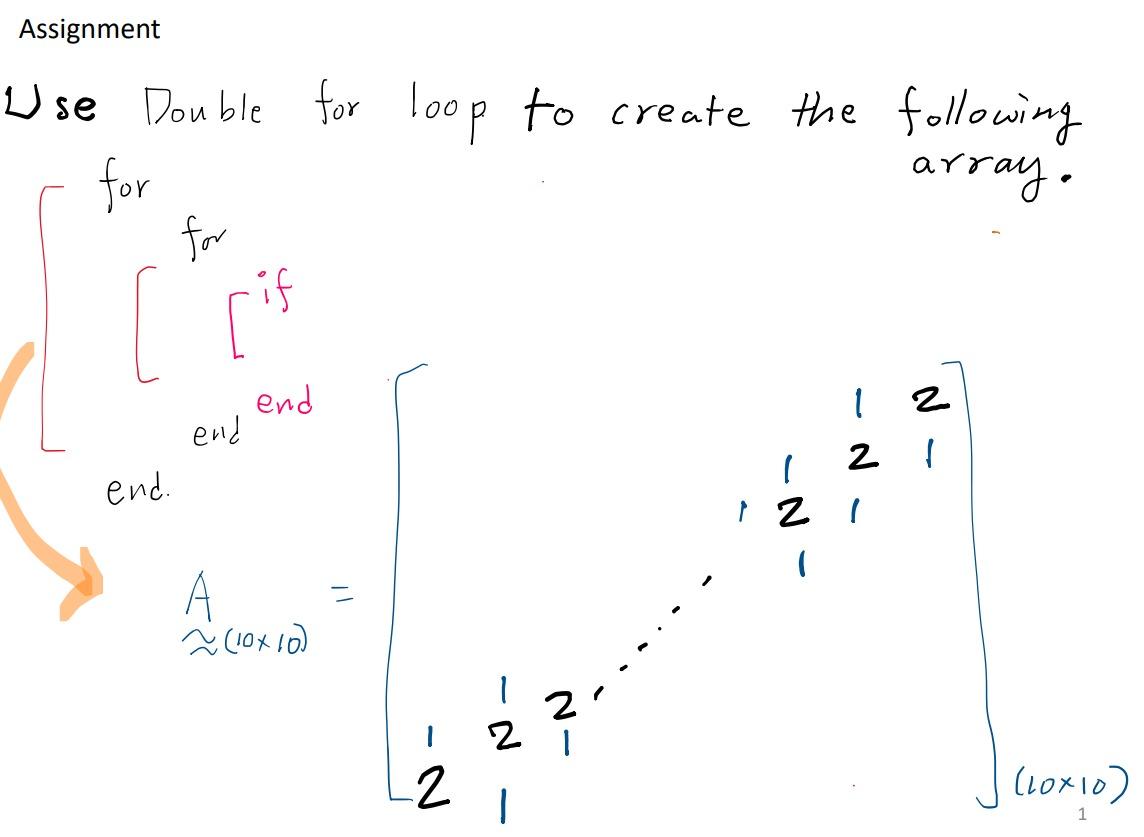 Assignment
Use Double for loop to create the following
array.
for
for
if
end
end
end.
1 2
1 2 1
1 2 1
1
A =
≈(10×10)
1
1 2
1 2 1
2 1
(10×10)
1